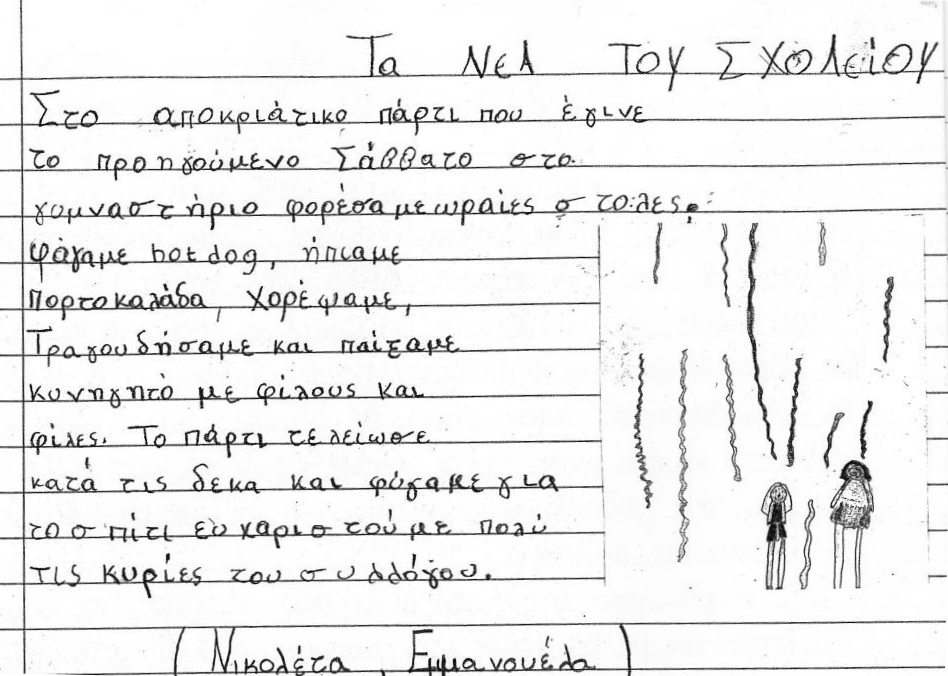 Τα ΝΕΑ ΤΟΥ ΣΧΟΛΕΙΟΥ
Στο αποκριάτικο πάρτι που έγινε
το προηγούμενο Σάββατο στο
γυμναστήριο φορέσαμε ωραίες στολες.
Φάγαμε hot dog, ήπιαμε
πορτοκαλάδα, χορέψαμε,
Τραγουδήσαμε και παίξαμε
κυνηγητό με φίλους και
φίλες. Το πάρτι τελείωσε
κατά τις δεκα και φύγαμε για
το σπίτι ευχαριστούμε πολύ
τις κυρίες του συλλόγου.
(Νικολέτα, Εμμανουέλα)